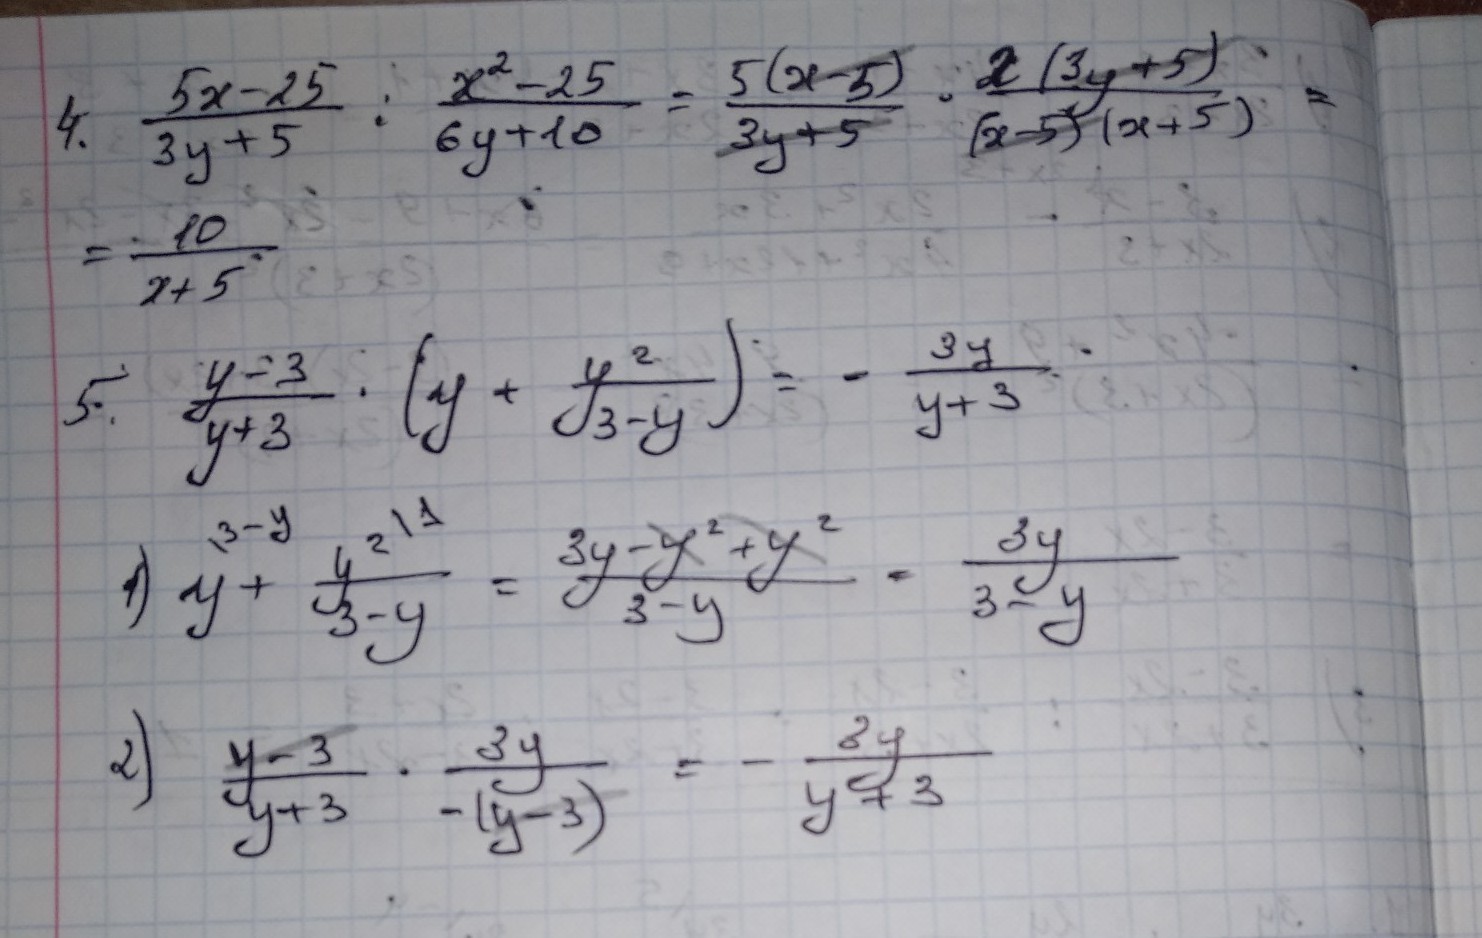 4. (5x-25)/(3y+5) : (x²-25)/(6y+10) = 5(x-5)/(3y+5) · 2(3y+5)/((x-5)(x+5)) =
= 10/(x+5)
5. (y-3)/(y+3) · (y + y²/(3-y)) = - 3y/(y+3)
1) y\3-y + y²\1/(3-y) = (3y-y²+y²)/(3-y) = 3y/(3-y)
2) (y-3)/(y+3) · 3y/(-(y-3)) = - 3y/(y+3)